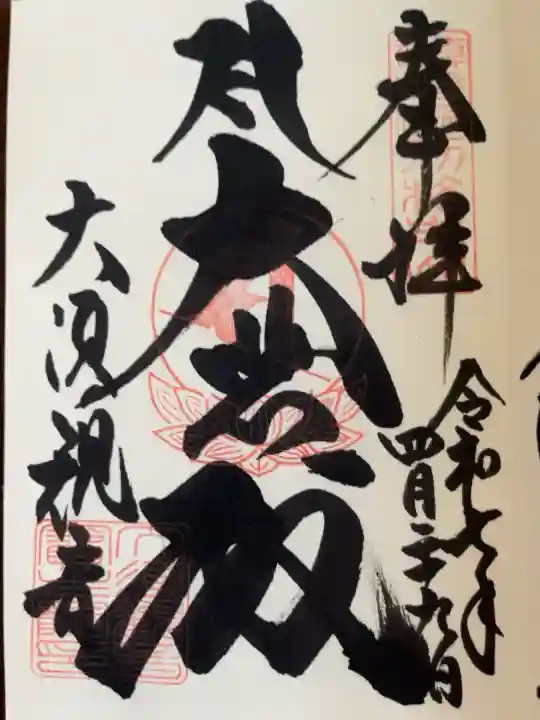 奉拝
令和七年
四月二十九日
大悲殿
大須観音